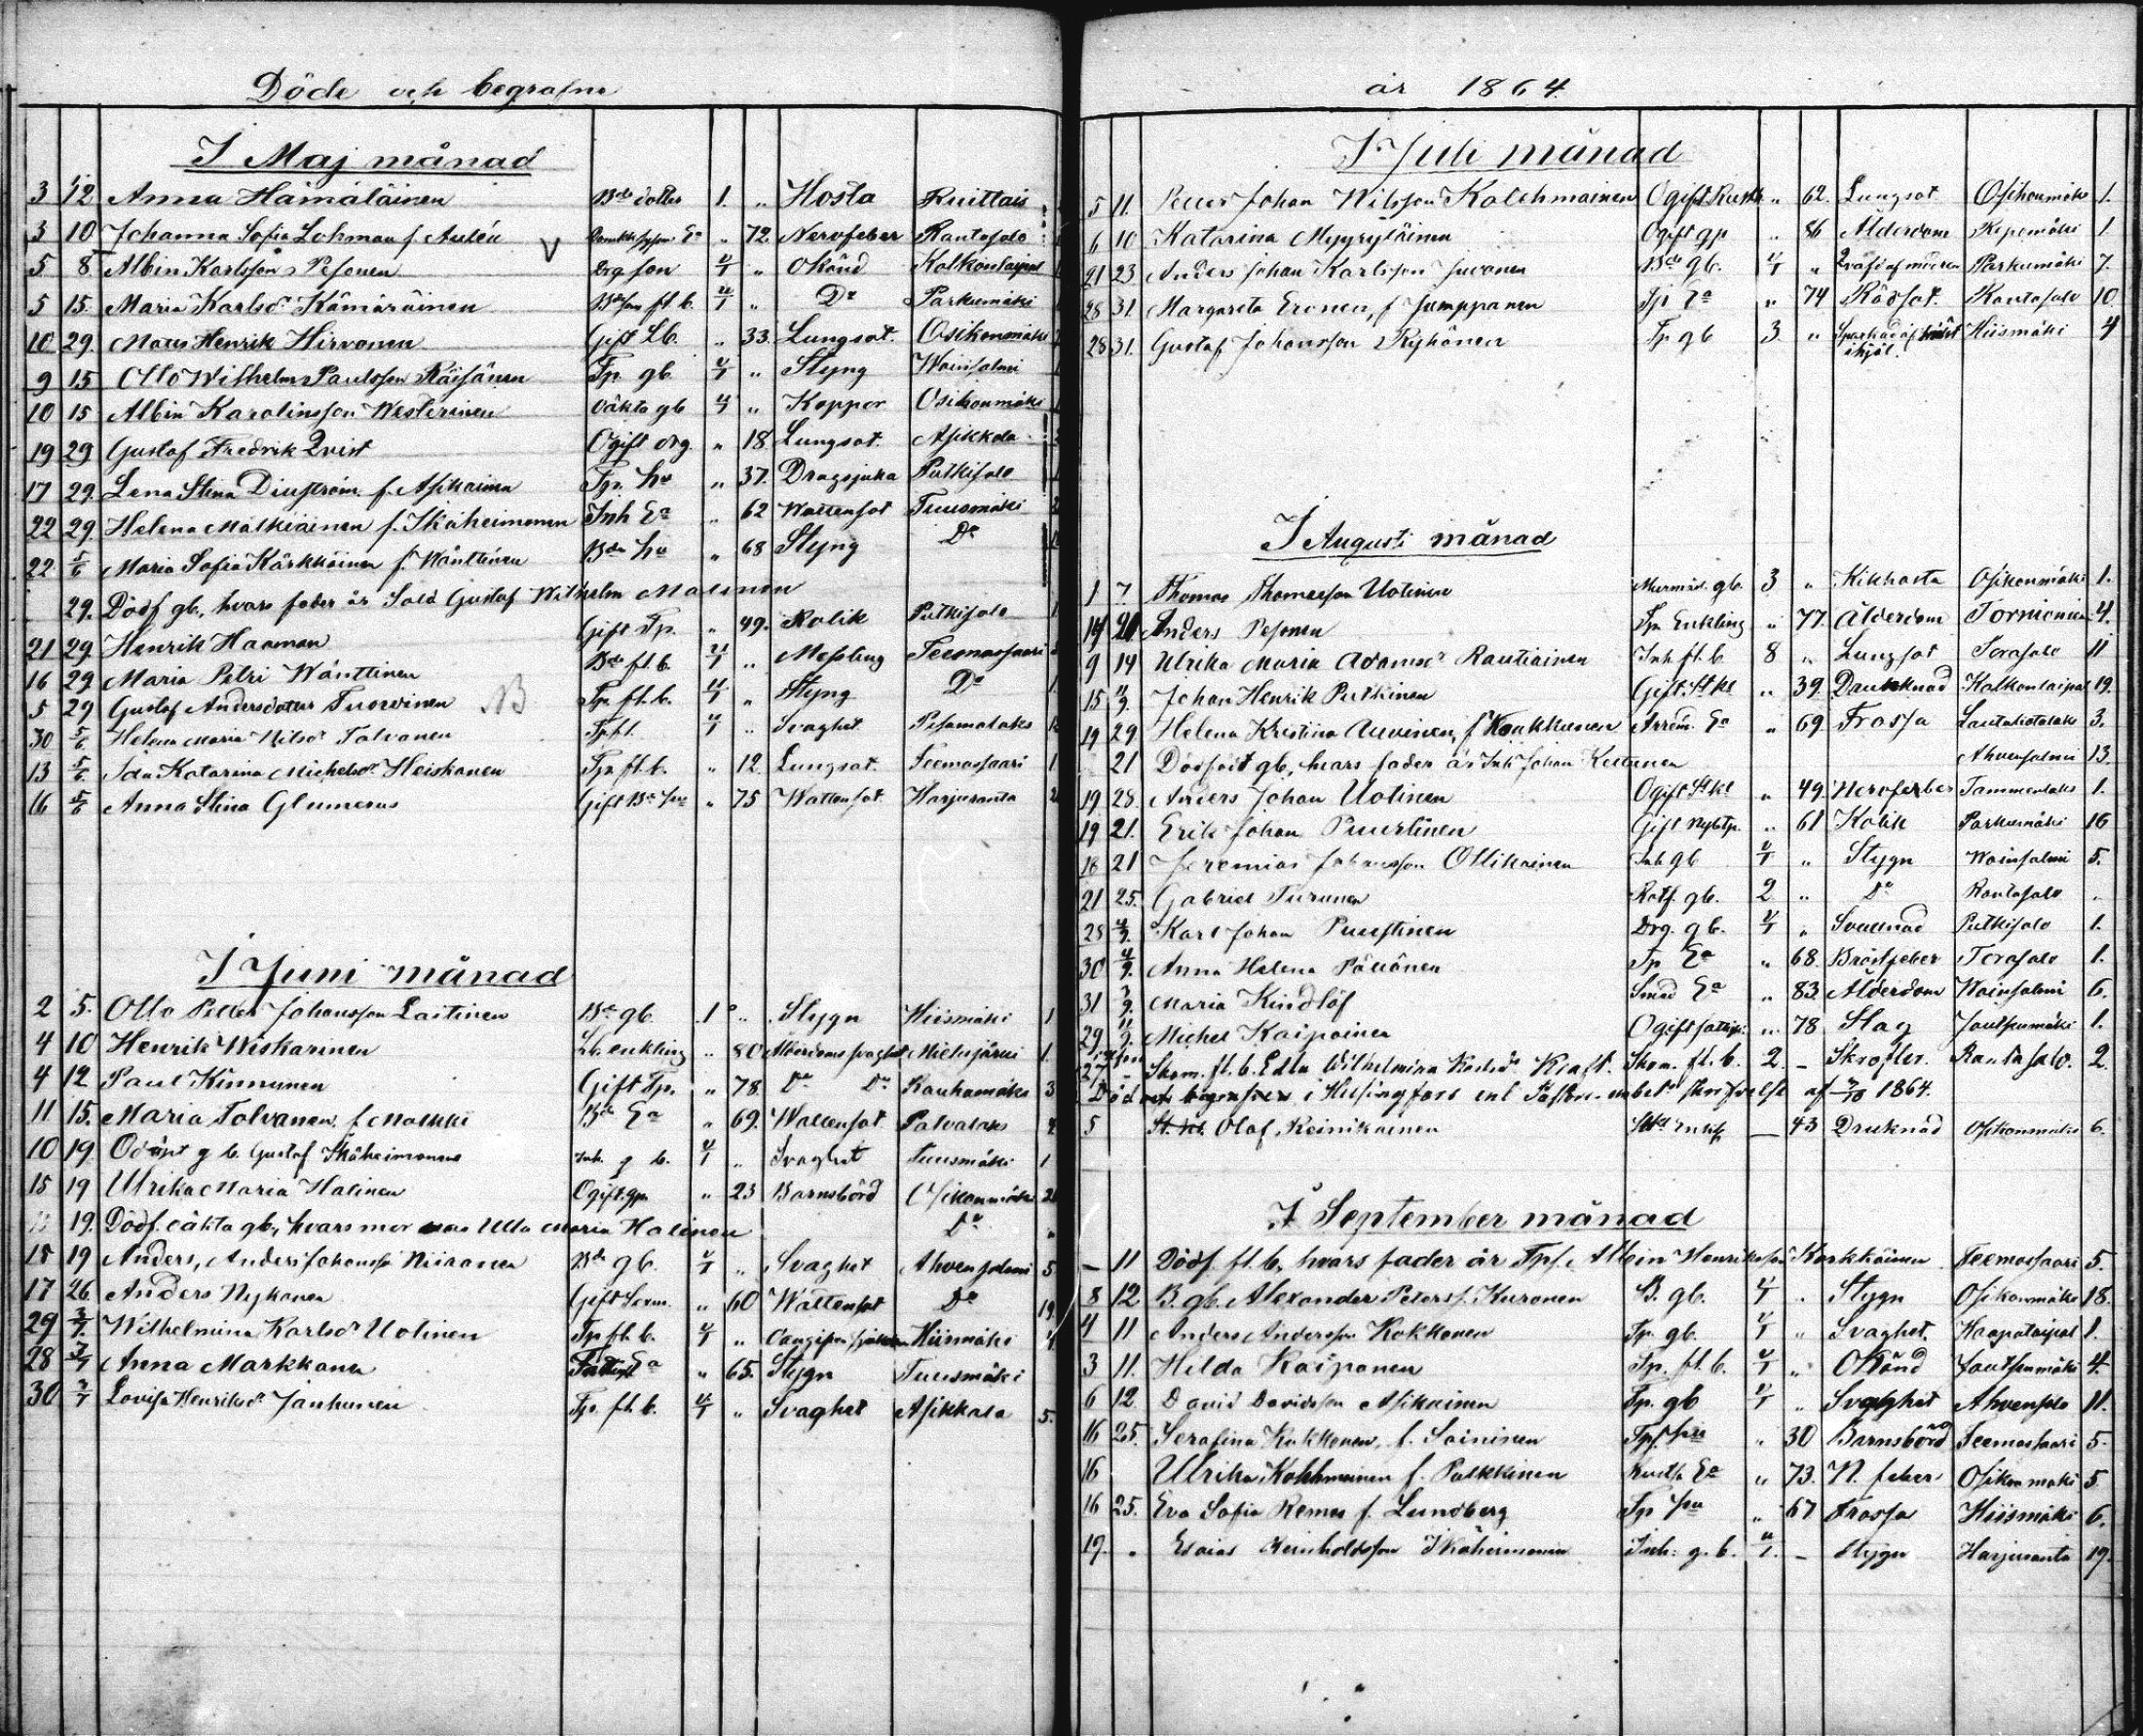 Döde och begrafne
I Maj månad
3 12 Anna Hämäläinen Bde dotter 1. " Hosta Ruittais
3 10 Johanna Sofia Lohman f. Aulén Ea " 72. Nervfeber Rantasalo
5 8 Albin Karlsson Pesonen Drg son " Okänd Kolkontaipal
5 15. Maria Karlsdr Kämäräinen fl. b. " Do Parkumäki
10 29. Maus Henrik Hirvonen Gift Lb. " 33. Lungsot. Osikonmäki
9 15 Otto Wilhelm Paulsson Räisänen Tp. gb. " Styng Wainsalmi
10 15 Albin Karolinsson Westerinen oäkta gb " Koppor Osikonmäki
19 29 Gustaf Fredrik Qvist Ogift drg. " 18 Lungsot. Asikkala
17 29. Lena Stina f. Asikainen Tp. hu " 37. Dragsjuka Putkisalo
22 29. Helena Malkiäinen f. Ikäheimonen Inh Ea " 62 Wattensot Tuusmäki
22 5/6 Maria Sofia Kärkkäinen f. Wänttinen Bde hu " 68 Styng Do
29. Dödf gb., hvars fader är Sold Gustaf Wilhelm Malinen
21 29 Henrik Haaman Gift Tp. " 49. Kolik Putkisalo
16 29 Maria Petri Wänttinen Bde fl. b. " Messling Teemassaari
5 29 Gustaf Andersdotter Tuovinen NB Tp. fl. b. " Styng Do
30 5/6 Helena Maria Nilsdr Tolvanen Tp fl. " Svaghet Pesamalaks
13 5/6 Ida Katarina Michelsdr Heiskanen Tp. fl. b. " 12. Lungsot. Teemassaari 1
16 5/6 Anna Stina Glumerus Gift " 75 Wattensot. Harjuranta
I Juni månad
2 5. Otto Petter Johansson Laitinen Bde gb. 1 " Stygn Hiismäki 1
4 10 Henrik Wiskarinen Lb. enkling " 80 Ålderdoms svaghet Mielusjärvi 1.
4 12 Paul Kinnunen Gift Tp. " 78. Do Do Rauhamäki 3
11 15. Maria Tolvanen f. Malkki Bde Ea " 69. Wattensot. Palvalaks
10 19 Odöpt g b. Gustaf Ikäheimonens Inh. g b. " Svaghet Tuusmäki 1
15 19 Ulrika Maria Halinen Ogift. gp. " 23 Barnsbörd Osikonmäki
19. Dödf. oäkta gb, hvars mor var Ulla Maria Halinen Do
15 19 Anders, Anders Johansson Niiranen Bde gb. " Svaghet Ahvensalmi 5
17 26. Anders Nykanen Gift " 60 Wattensot Do 19
29 3/7. Wilhelmina Karlsdr Uotinen Tp. fl. b. " Hiismäki
28 3/7 Anna Markkanen Ea " 65. Stygn Tuusmäki
30 3/7 Lovisa Henriksdr Janhunen Tp. fl. b. " Svaghet Asikkala 5.
år 1864
I Juli månad
5 11. Petter Johan Nilsson Kolehmainen Ogift " 62. Lungsot. Osikonmäki 1.
6 10 Katarina Myyryläinen Ogift gp " 86 Ålderdom Repomäki 1
21 23 Anders Johan Karlsson Juvonen Bde gb. " Qväfd af modren Parkumäki 7.
28 31. Margareta Eronen, f Jumppanen Tp Ea " 74 Rödsot. Rantasalo 10.
28 31. Gustaf Johansson Ryhänen Tp gb 3. " Sparkad af häst ihjäl. Hiismäki 4
I Augusti månad
1 7. Thomas Thomasson Uotinen gb. 3 " Kikhosta Osikonmäki 1.
14 21 Anders Pesonen Tp Enkling " 77. Ålderdom Torniania 4.
9 14 Ulrika Maria Adamsdr Rautiainen Inh fl. b 8 " Lungsot Torasalo 11
15 Johan Henrik Putkinen Gift. St kl " 39. Drunknad Kolkontaipal 19.
19 29 Helena Kristina Auvinen, f Koukkunen Ea " 69. Frossa Lautakotalaks 3.
21 Dödfödt gb, hvars fader är Inh Johan Kettunen Ahvensalmi 13
19 28. Anders Johan Uotinen Ogift St kl " 49. Nervfeber Tammenlaks 1.
19 21. Erik Johan Puustinen Gift " 61 Kolik Parkumäki 16
18 21 Jeremias Johansson Ollikainen Inh gb " Stygn Wainsalmi 5.
21 25. Gabriel Turunen Rotf. gb. 2 " Do Rantasalo "
28 4/9. Karl Johan Puustinen Drg. gb. " Svullnad Putkisalo 1.
30 4/9. Anna Helena Pöllönen Tp Ea " 68. Bröstfeber Torasalo 1.
31 Maria Kindlöf Smed Ea " 83. Ålderdom Wainsalmi 6.
29 11/9. Michel Kaipainen Ogift " 78 Slag Jautsenmäki 1.
27 - Skom. fl. b. Edla Wilhelmina Karlsdr Kraft. Skom. fl. b. 2. - Skrofler. Rantasalo. 2.
Död och begrafven i Helsingfors enl Pastors-embet. skrifvelse af 1864.
5 St. kl. Olof Reinikainen — 43 Druknad Osikonmäki 6.
I September månad
— 11 Dödf. fl. b, hvars fader är Tps. Albin Henriksson Karkkäinen Teemassaari 5.
8 12 B. gb. Alexander Peterss. Kuronen B. gb. " Stygn Osikonmäki 18.
4 11 Anders Andersson Kokkonen Tp. gb. " Svaghet. Haapataipal 1.
3 11. Hilda Kaiponen Tp. fl. b. " Okänd Jautsenmäki 4.
6 12. David Davidsson Asikainen Tp. gb " Svaghet Ahvensalo 11.
16 25. Serafina Kokkonen, f. Soininen Tps. hu " 30 Barnsbörd Teemassaari 5.
16 Ulrika Kohlmainen f. Pulkkinen Ea " 73. N. feber Osikonmäki 5
16 25. Eva Sofia Remes f. Lundberg Tp hu " 67 Frossa Hiismäki 6.
19. " Esaias Reinholdsson Ikäheimonen Inh. g. b. - Stygn Harjuranta 19.